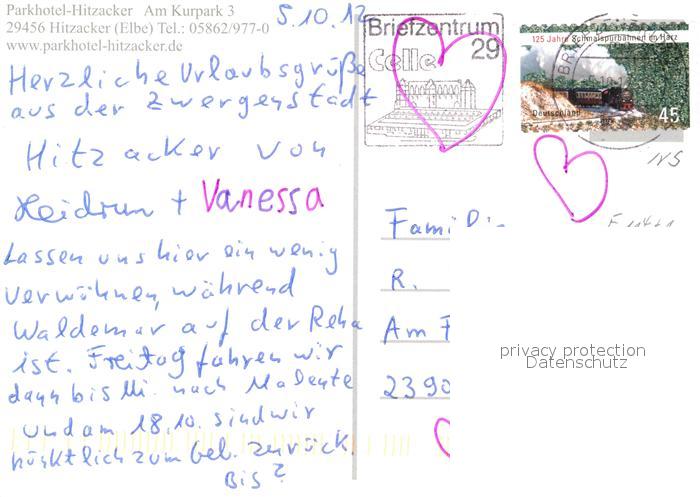 Parkhotel-Hitzacker Am Kurpark 3
29456 Hitzacker (Elbe) Tel.: 05862/977-0
www.parkhotel-hitzacker.de
5.10.12
Herzliche Urlaubsgrüße
aus der Zwergenstadt
Hitzacker von
Heidrun + Vanessa
Lassen uns hier ein wenig
verwöhnen, während
Waldemar auf der Reha
ist. Freitag fahren wir
dann bis Mi. nach Malente
und am 18.10. sind wir
pünktlich zum zurück.
Bis
Briefzentrum
29
Celle
125 Jahre Schmalspurbahnen im Harz
Deutschland
45
Fami
R.
Am
2390
privacy protection
Datenschutz